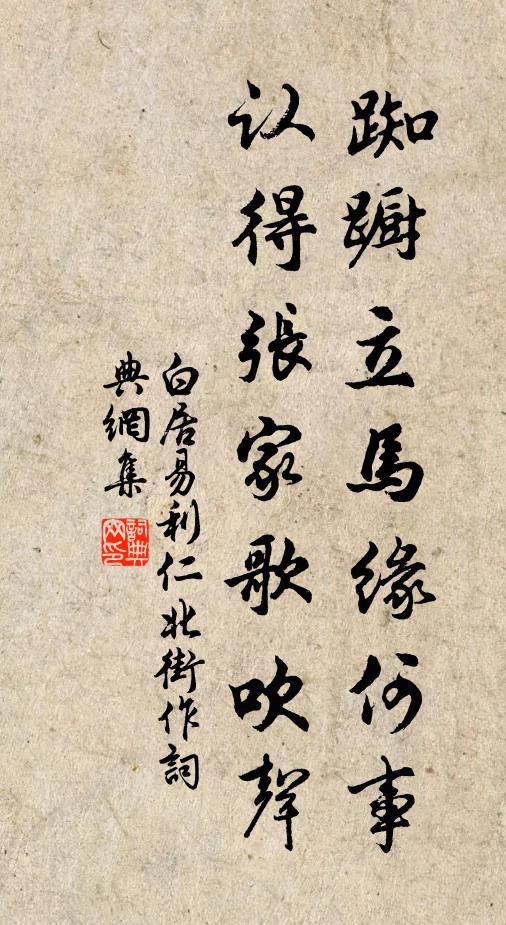 踟蹰立馬緣何事
认得張家歌吹聲
白居易利仁北街作詞
典網集
詞典网印